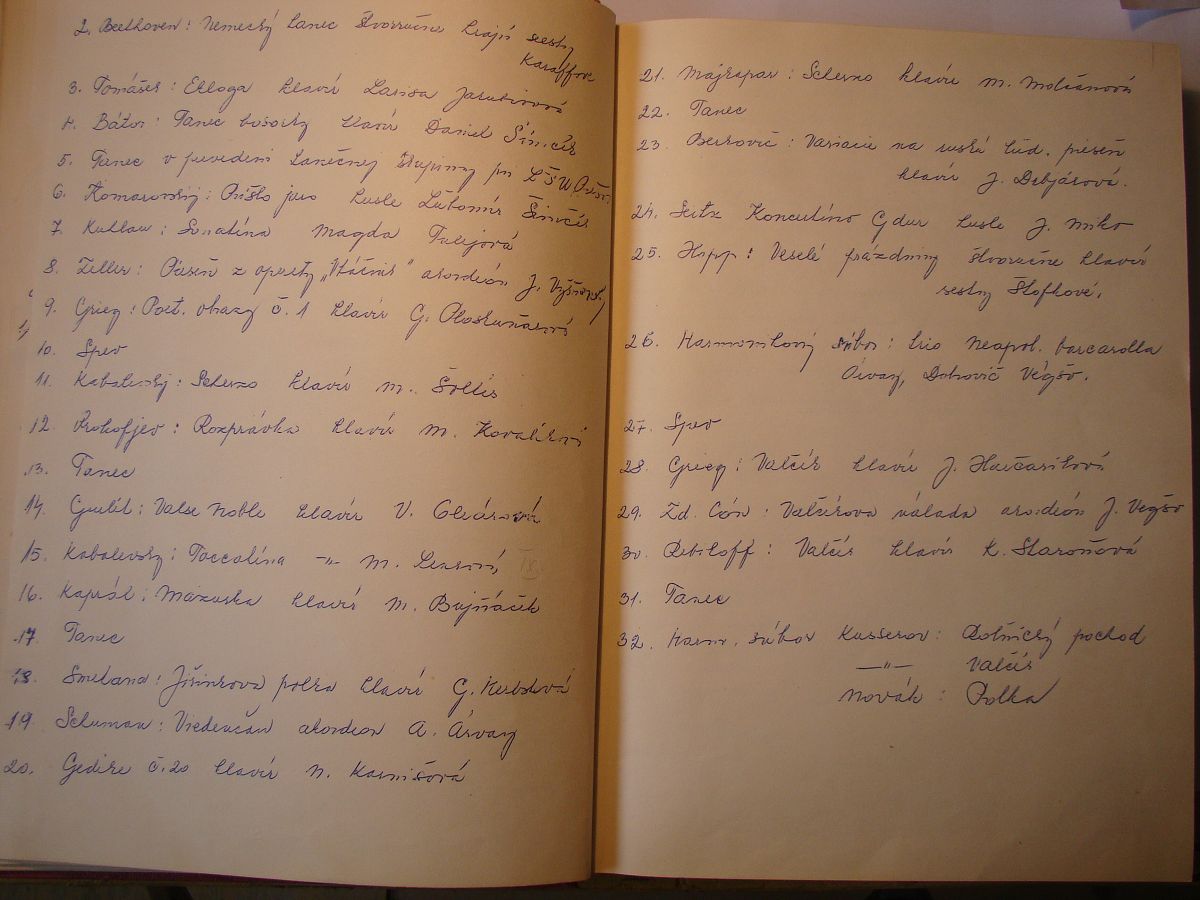 2. Beethoven: Nemecký tanec štvorručne hrajú sestry
Karaffove
3. Tomášek: Ekloga klavír Larisa Jakubivová
4. Bázlik: Tanec bosorky klavír Daniel Šimčík
5. Tanec v prevedení tanečnej skupiny pri LŠU
6. Komarovskij: Prišlo jaro husle Ľubomír Šimčík
7. Kuhlau: Sonatína Magda
8. Zeller: Pieseň z operety „Vtáčnik" akordeón J.
9. Grieg: Poet. obrazy č. 1 klavír G. Ploskuňáková
10. Spev
11. Kabalevský: Scherzo klavír M. Šoltís
12. Prokofjev: Rozprávka klavír M. Kovalíková
13. Tanec
14. Gurlit: Valse Noble klavír V. Olejárová
15. Kabalevsky: Toccatina -"- M.
16. Kaprál: Mazurka klavír M. Bujňáček
17. Tanec
18. Smetana: Jiřinková polka klavír G.
19. Schuman: Viedenčan akordeon A. Árvay
20. Gedike č. 20 klavír N. Karnišová
21. Majkapar: Scherzo klavír M. Molčanová
22. Tanec
23. Berkovič: Variacie na ruskú ľud. pieseň
klavír J. Debjárová.
24. Seitz Koncertíno G dur husle J. Miko
25. Hipp: Veselé prázdniny štvorručne klavír
sestry Štofkové.
26. Harmonikový súbor: trio Neapol. barcarolla
Árvay, Dohovič Végšo.
27. Spev
28. Grieg: Valčík klavír J.
29. Zd. Cón: Valčíkova nálada akordeón J. Végšo
30. Rebikoff: Valčík klavír K. Staroňová
31. Tanec
32. Harm. súbor Kusserov: Rolnický pochod
—"— Valčík
Novák: Polka